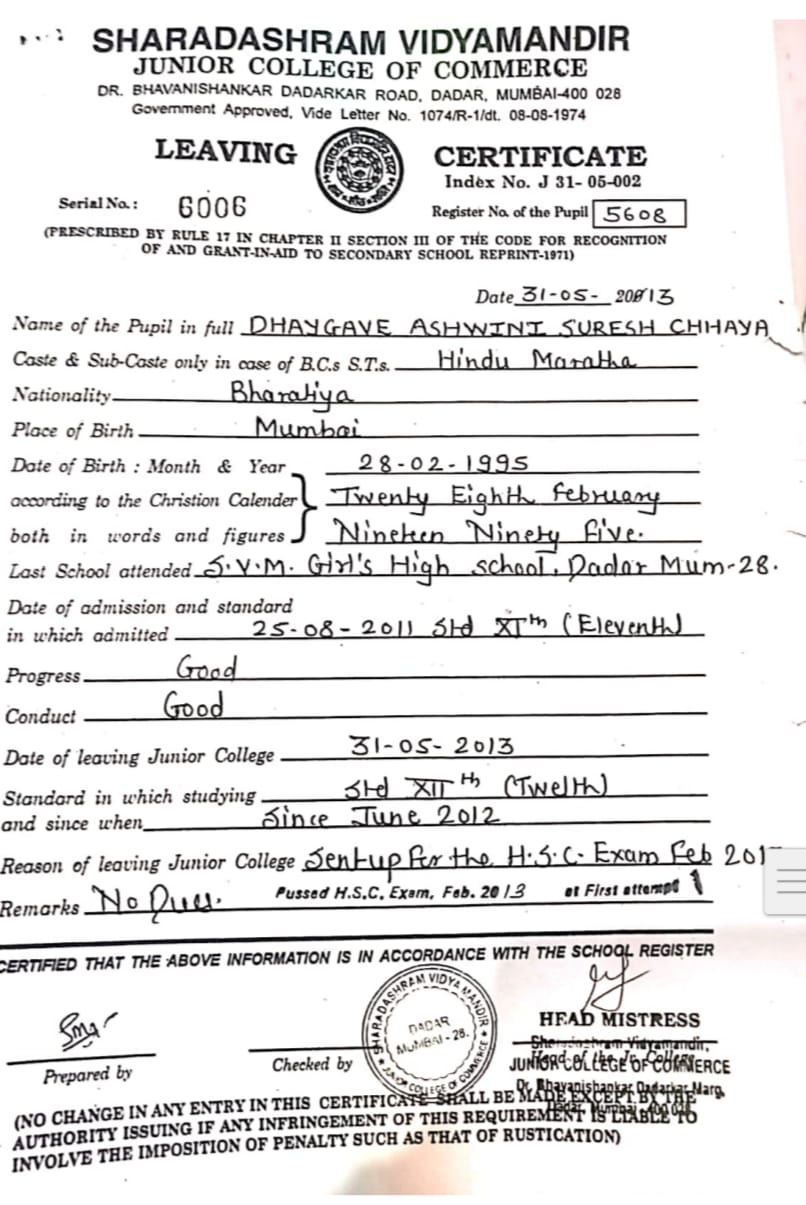 SHARADASHRAM VIDYAMANDIR
JUNIOR COLLEGE OF COMMERCE
DR. BHAVANISHANKAR DADARKAR ROAD, DADAR, MUMBAI-400 028
Government Approved, Vide Letter No. 1074/R-1/dt. 08-08-1974
LEAVING CERTIFICATE
Index No. J 31- 05-002
Serial No.: 6006 Register No. of the Pupil 5608
(PRESCRIBED BY RULE 17 IN CHAPTER II SECTION III OF THE CODE FOR RECOGNITION
OF AND GRANT-IN-AID TO SECONDARY SCHOOL REPRINT-1971)
Date 31-05- 2013
Name of the Pupil in full DHAYGAVE ASHWINI SURESH CHHAYA
Caste & Sub-Caste only in case of B.C.s S.T.s. Hindu Maratha
Nationality Bharatiya
Place of Birth Mumbai
Date of Birth : Month & Year 28-02-1995
according to the Christion Calender Twenty Eighth february
both in words and figures Nineteen Ninety five.
Last School attended S.V.M. Girl's High school, Dadar Mum-28.
Date of admission and standard
in which admitted 25-08-2011 Std XIth (Eleventh)
Progress Good
Conduct Good
Date of leaving Junior College 31-05-2013
Standard in which studying Std XIIth (Twelth)
and since when Since June 2012
Reason of leaving Junior College Sent up for the H.S.C. Exam Feb 201
Remarks No Dues. Passed H.S.C. Exam, Feb. 2013 at First attempt 1
CERTIFIED THAT THE ABOVE INFORMATION IS IN ACCORDANCE WITH THE SCHOOL REGISTER
SHARADASHRAM VIDYA MANDIR
DADAR
MUMBAI-28.
JUNIOR COLLEGE OF COMMERCE
HEAD MISTRESS
Sharadashram Vidyamandir,
Head of the Jr. College
JUNIOR COLLEGE OF COMMERCE
Dr. Bhavanishankar Dadarkar Marg,
Dadar, Mumbai-400 028
Prepared by Checked by
(NO CHANGE IN ANY ENTRY IN THIS CERTIFICATE SHALL BE MADE EXCEPT BY THE
AUTHORITY ISSUING IF ANY INFRINGEMENT OF THIS REQUIREMENT IS LIABLE TO
INVOLVE THE IMPOSITION OF PENALTY SUCH AS THAT OF RUSTICATION)